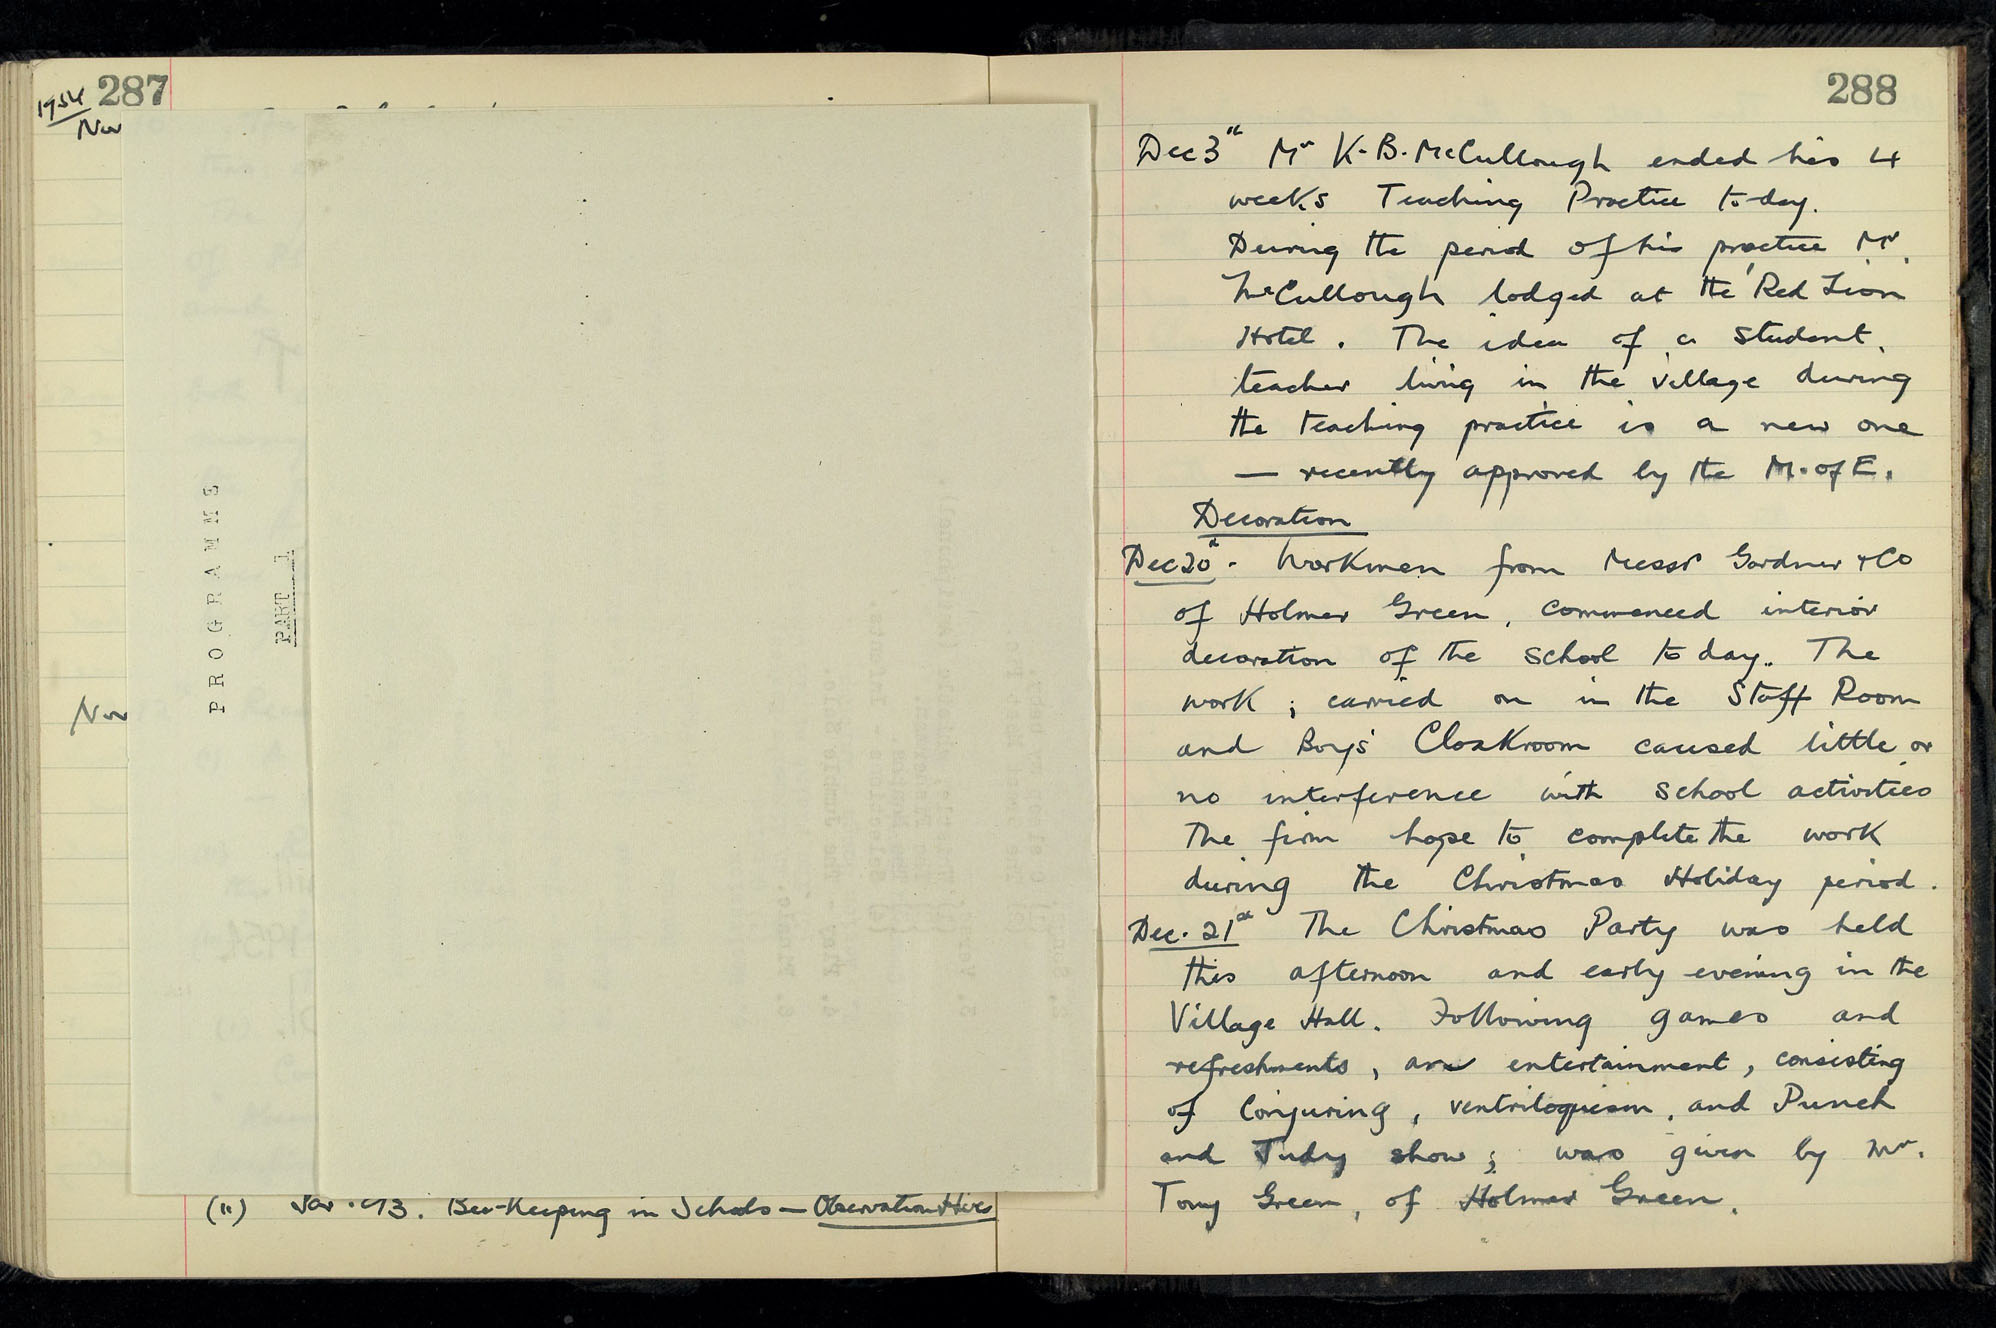 287
1954
Nov
Nov
PROGRAMME
PART 1
(ii) Var. 93. Bee-Keeping in Schools — Observation Hives
288
Dec 3rd Mr K. B. McCullough ended his 4
weeks Teaching Practice to-day.
During the period of his practice Mr.
McCullough lodged at the 'Red Lion
Hotel. The idea of a student
teacher living in the village during
the teaching practice is a new one
— recently approved by the M. of E.
Decoration
Dec 20th. Workmen from Messrs Gardner & Co
of Holmer Green, commenced interior
decoration of the school to day. The
work, carried on in the Staff Room
and Boys' Cloakroom caused little or
no interference with school activities
The firm hope to complete the work
during the Christmas Holiday period.
Dec. 21st The Christmas Party was held
this afternoon and early evening in the
Village Hall. Following games and
refreshments, an entertainment, consisting
of Conjuring, ventriloquism, and Punch
and Judy show; was given by Mr.
Tony Green, of Holmer Green.